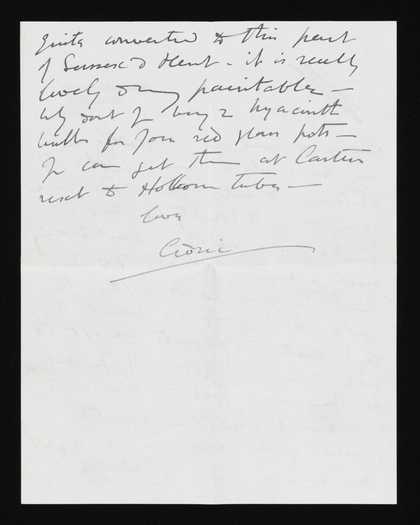 quite converted to this part
of Sussex & Kent - it is really
lovely & very paintable -
why don't you buy 2 hyacinth
bulbs for your red glass pots -
you can get them at Carters
next to Holborn tube -
love
Cedric